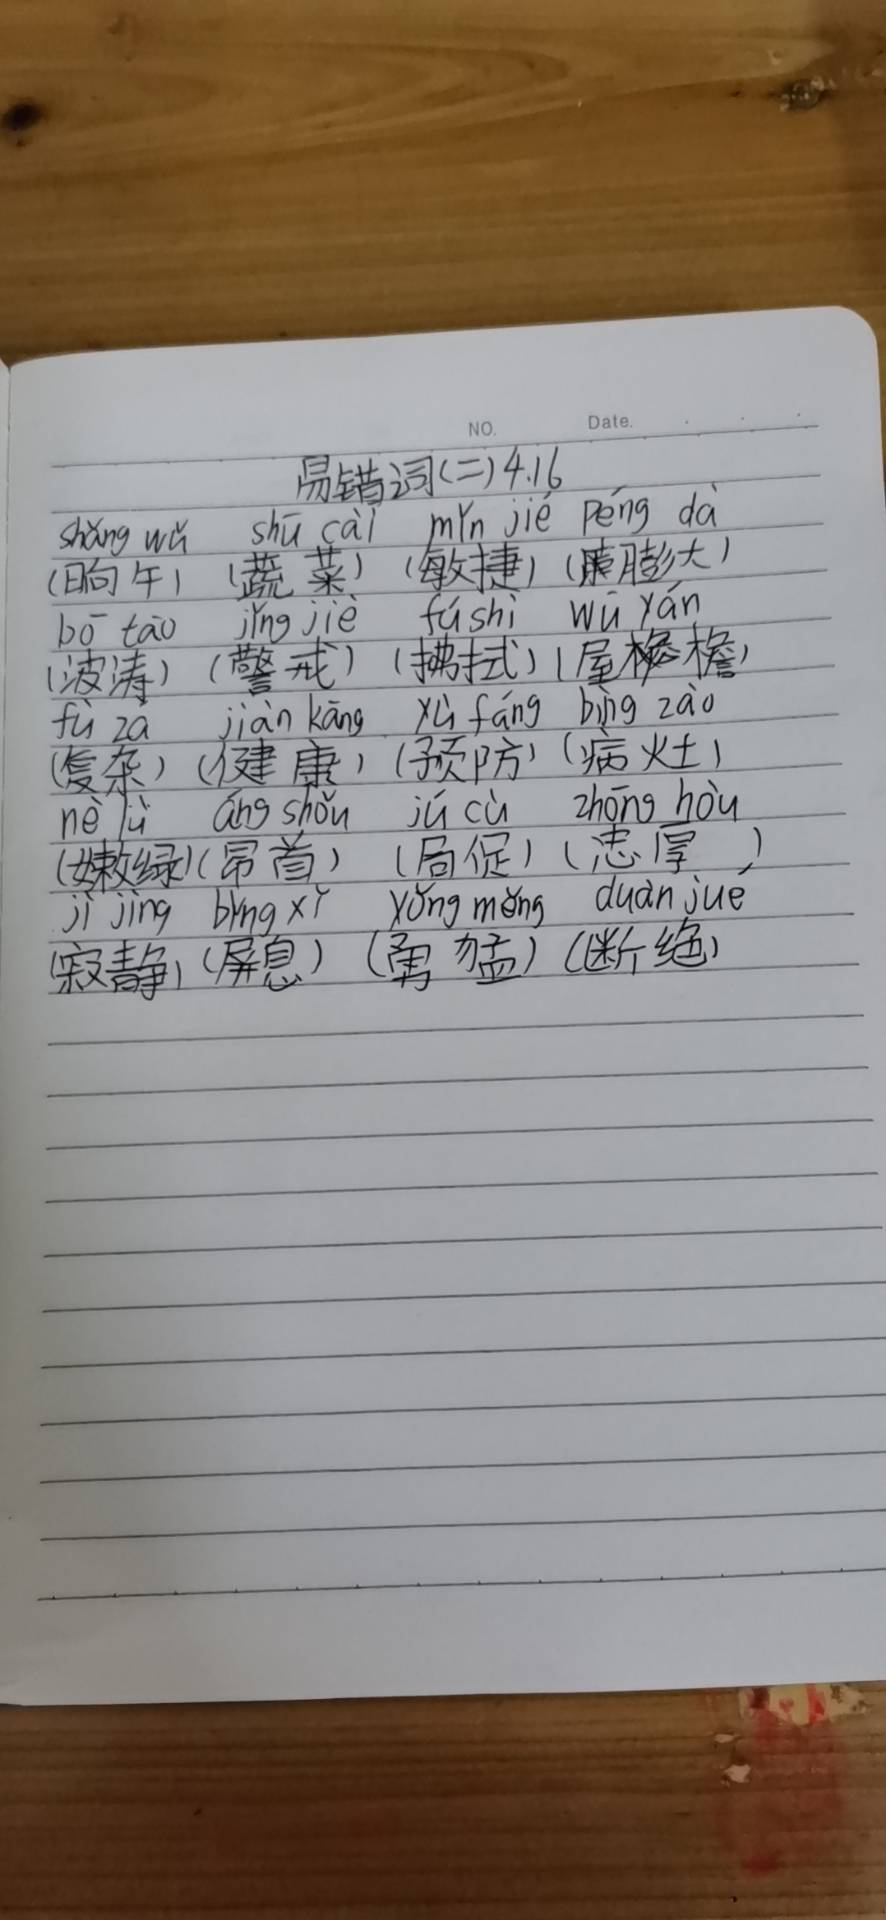 NO. Date.
易错词(二)4.16
shǎng wǔ shū cài mǐn jié péng dà
(晌午)(蔬菜)(敏捷)(膨大)
bō tāo jǐng jiè fú shì wū yán
(波涛)(警戒)(拂拭)(屋檐)
fù zá jiàn kāng yù fáng bìng zào
(复杂)(健康)(预防)(病灶)
nè lǜ áng shǒu jú cù zhōng hòu
(嫩绿)(昂首)(局促)(忠厚)
jì jìng bǐng xī yǒng měng duàn jué
(寂静)(屏息)(勇猛)(断绝)